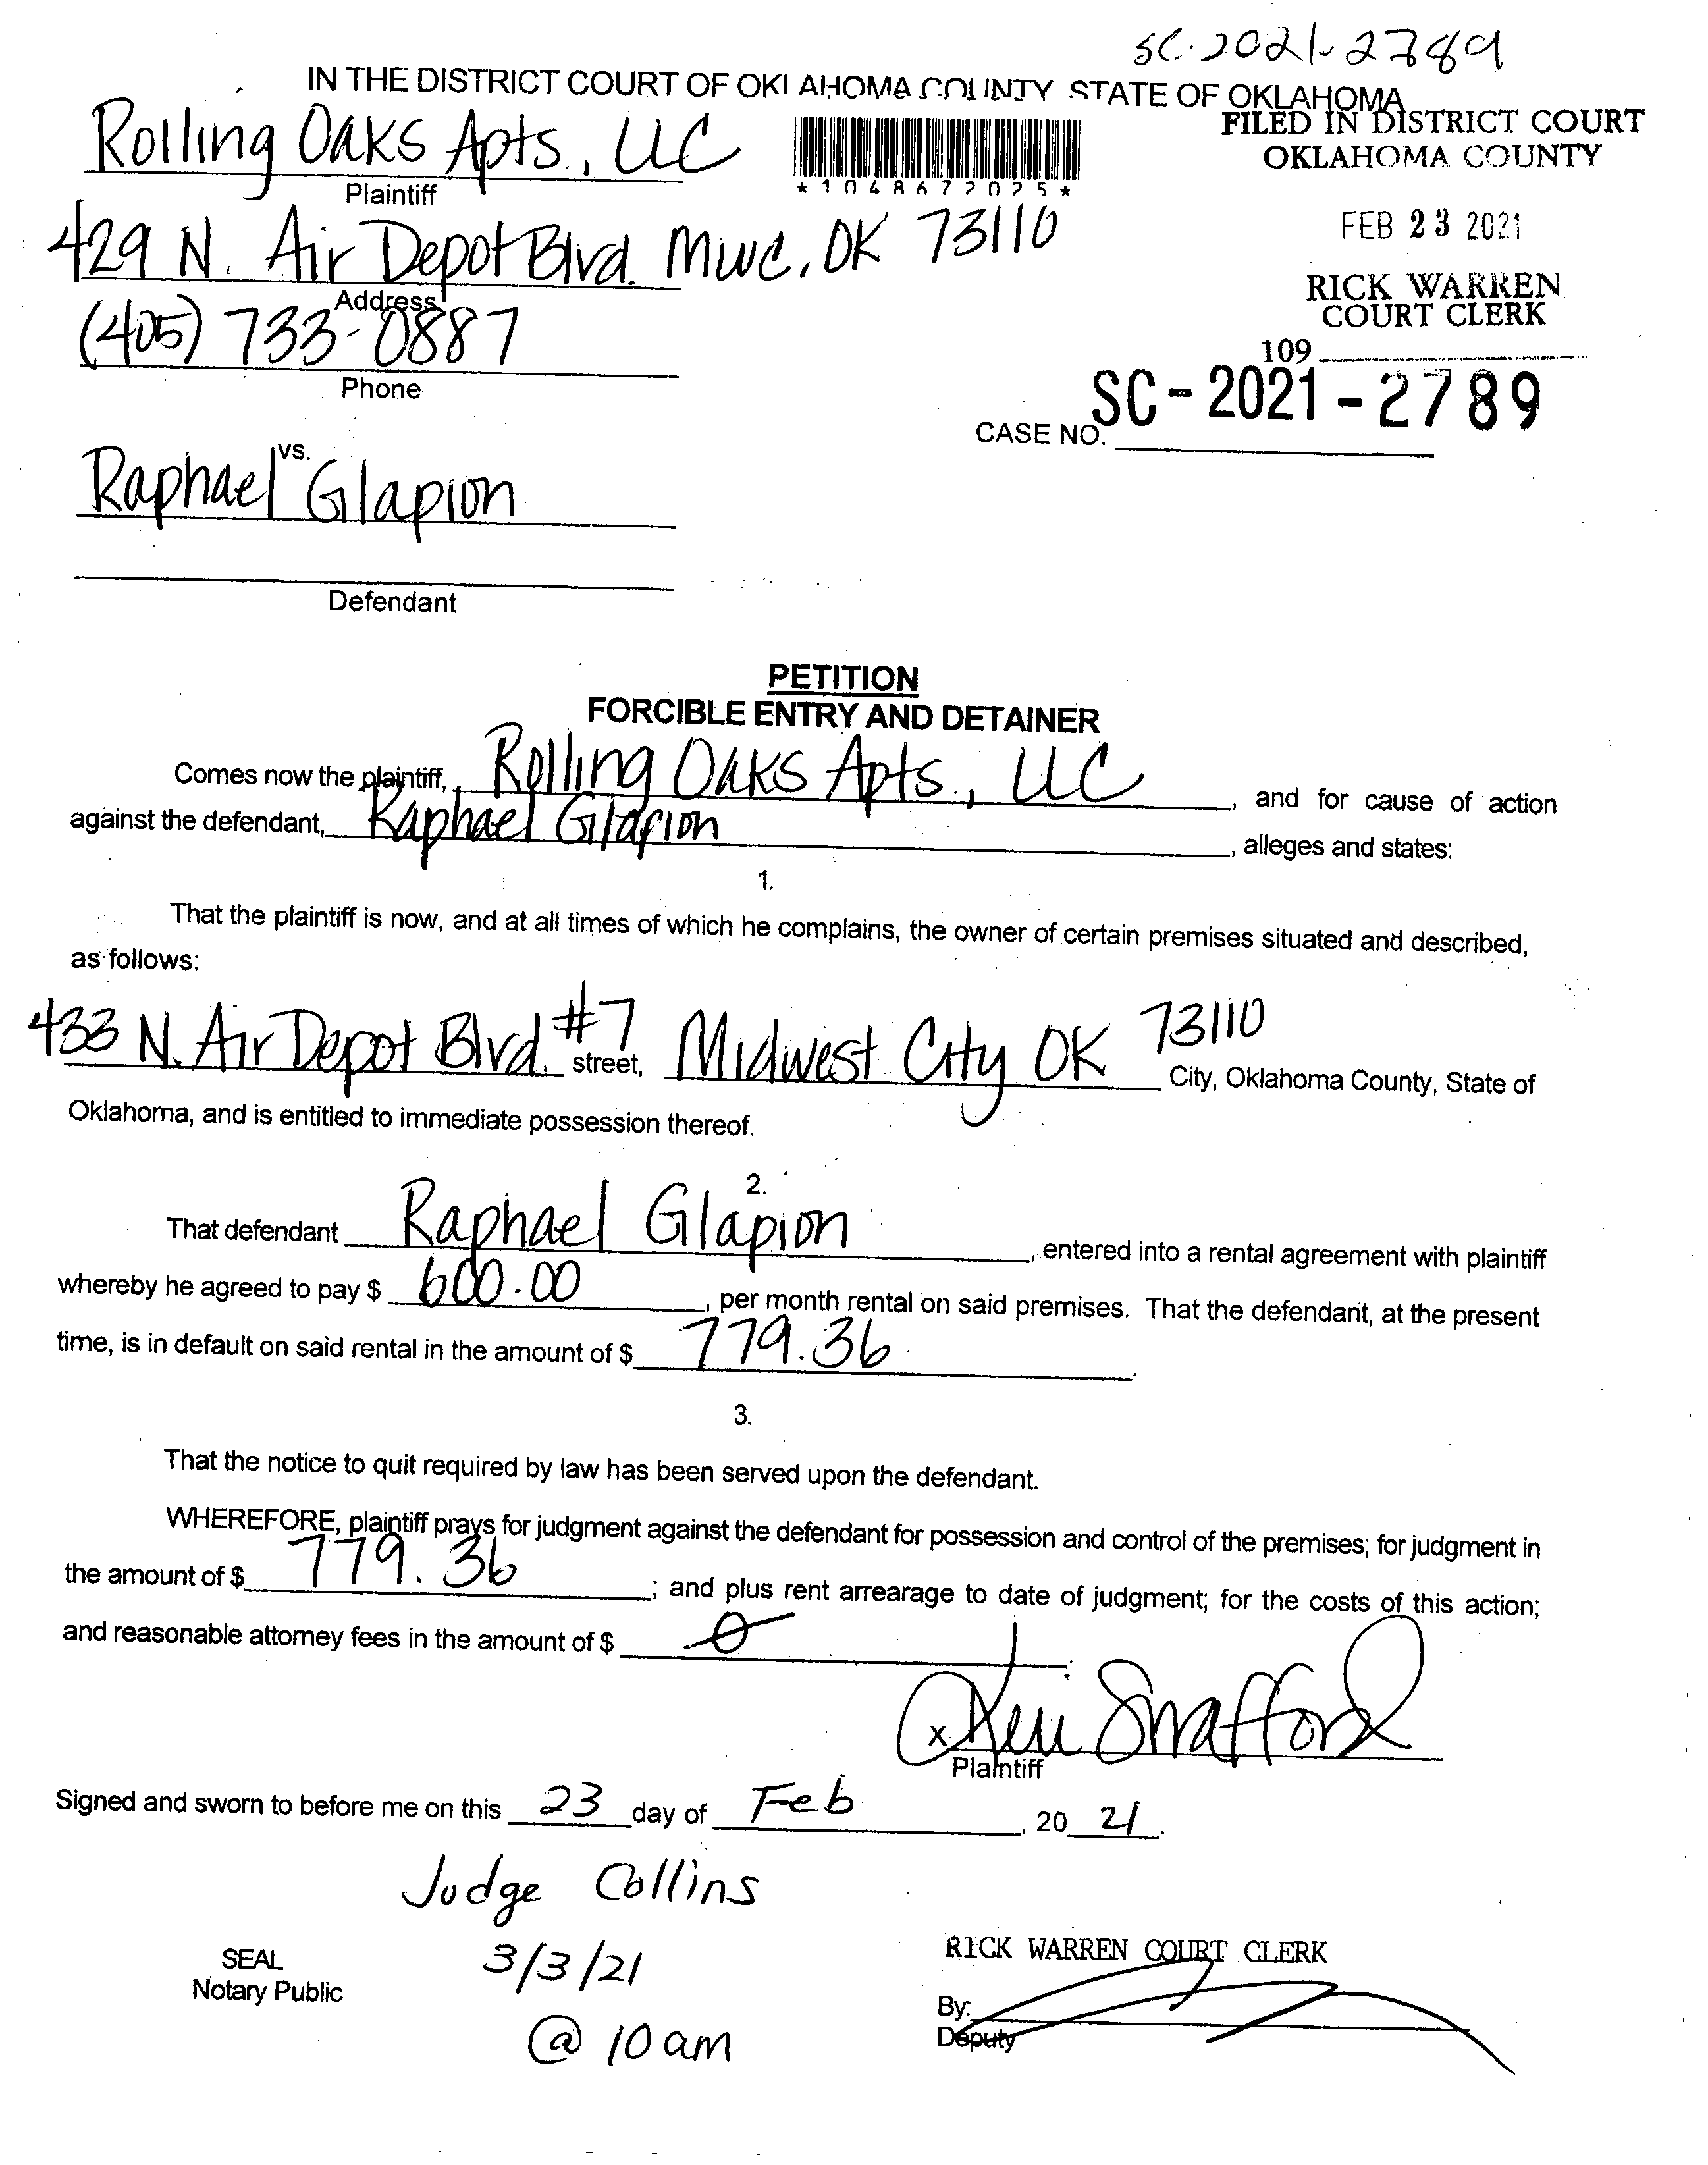 SC-2021-2789
IN THE DISTRICT COURT OF OKLAHOMA COUNTY STATE OF OKLAHOMA
Rolling Oaks Apts., LLC
Plaintiff
*1048672025*
FILED IN DISTRICT COURT
OKLAHOMA COUNTY
FEB 23 2021
RICK WARREN
COURT CLERK
109
429 N. Air Depot Blvd. MWC, OK 73110
Address
(405) 733-0887
Phone
CASE NO. SC-2021-2789
vs.
Raphael Glapion
Defendant
PETITION
FORCIBLE ENTRY AND DETAINER
Comes now the plaintiff, Rolling Oaks Apts., LLC, and for cause of action
against the defendant, Raphael Glapion, alleges and states:
1.
That the plaintiff is now, and at all times of which he complains, the owner of certain premises situated and described,
as follows:
433 N. Air Depot Blvd. #7 street, Midwest City OK 73110 City, Oklahoma County, State of
Oklahoma, and is entitled to immediate possession thereof.
2.
That defendant Raphael Glapion, entered into a rental agreement with plaintiff
whereby he agreed to pay $ 600.00, per month rental on said premises. That the defendant, at the present
time, is in default on said rental in the amount of $ 779.36.
3.
That the notice to quit required by law has been served upon the defendant.
WHEREFORE, plaintiff prays for judgment against the defendant for possession and control of the premises; for judgment in
the amount of $ 779.36; and plus rent arrearage to date of judgment; for the costs of this action;
and reasonable attorney fees in the amount of $ 0;
x
Plaintiff
Signed and sworn to before me on this 23 day of Feb, 20 21.
Judge Collins
SEAL
Notary Public
3/3/21
@ 10 am
RICK WARREN COURT CLERK
By:
Deputy